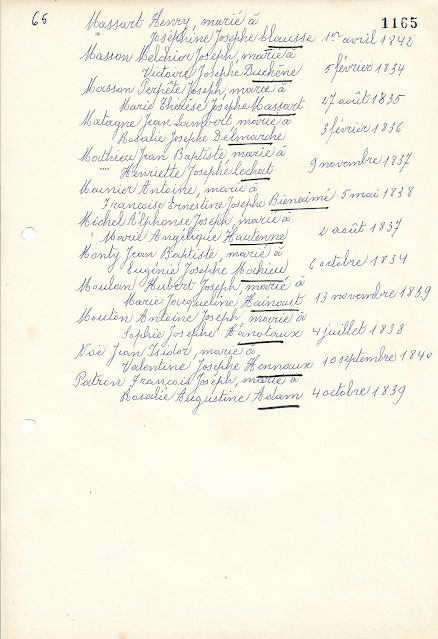 65
1165
Massart Henry, marié à
Joséphine Joseph Clausse 1er avril 1842
Masson Melchior Joseph, mariè à
Victoire Josephe Duchêne 5 février 1834
Masson Perpète Joseph, marié à
Marie Thélèse Josephe Massart 27 août 1835
Matagne Jean Lambert marié à
Rosalie Josephe Delmarche 3 février 1836
Mathieu Jean Baptiste marié à
Henriette Josephe Lechat 9 novembre 1837
Meunier Antoine, marié à
Francoise Ernestine Josephe Bienaimé 5 mai 1838
Michel Alphonse Joseph, marié à
Marie Angélique Hautenne 2 août 1837
Monty Jean Baptiste, marié à
Eugénie Josephe Mathieu 6 octobre 1834
Moulan Hubert Joseph, marié à
Marie Jacqueline Hainaut 13 novembre 1839
Mouton Antoine Joseph, marié à
Sophie Josephe Hanotaux 4 juillet 1838
Noë Jean Isidor, marié à
Valentine Josephe Hennaux 10 septembre 1840
Patron Francois Joseph, marié à
Rosalie Augustine Adam 4 octobre 1839